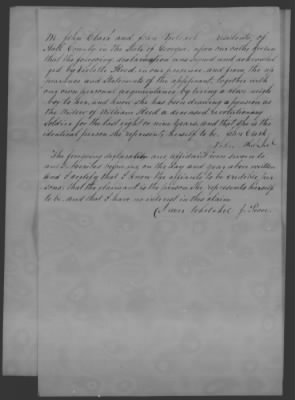 We John Clark and John residents of
Hall County in the State of Georgia, upon our oaths declare
that the foregoing declaration was signed and acknowled
ged by Violette Hood in our presence, and from the ap
pearance and Statements of the applicant, together with
our own personal acquaintance by living a close neigh
bor to her, and know she has been drawing a pension as
the Widow of William Hood a deceased revolutionary
Soldier for the last eight or nine years, and that she is the
identical person she represents herself to be. John Clark
John
The foregoing declaration and affidavit were sworn to
and subscribed before me on the day and year above written
and I certify that I know the affiants to be credible per
sons, that the claimant is the person she represents herself
to be, and that I have no interest in this claim
J. Peace